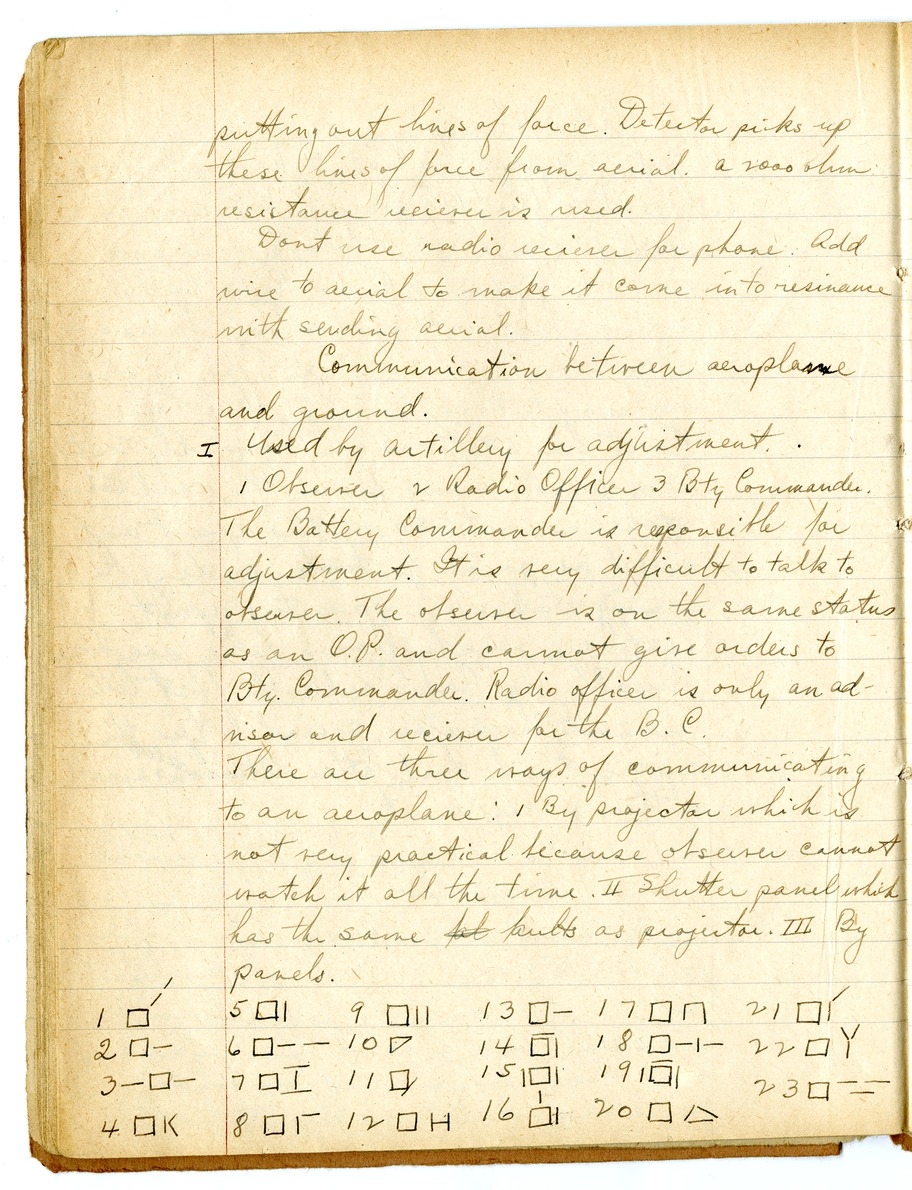 putting out lines of force. Detector picks up
these lines of force from aerial. a 2000 ohm
resistance reciever is used.
Dont use radio reciever for phone. Add
wire to aerial to make it come into resinance
with sending aerial.
Communication between aeroplane
and ground.
I Used by artillery for adjustment.
1 Observer 2 Radio Officer 3 Bty Commander.
The Battery Commander is responsible for
adjustment. It is very difficult to talk to
observer. The observer is on the same status
as an O.P. and cannot give orders to
Bty. Commander. Radio officer is only an ad-
visor and reciever for the B.C.
There are three ways of communicating
to an aeroplane: 1 By projector which is
not very practical because observer cannot
watch it all the time. II Shutter panel which
has the same as projector. III By
panels.
1 5 9 13 17 21
2 6 10 14 18 22
3 7 11 15 19 23
4 K 8 12 H 16 20